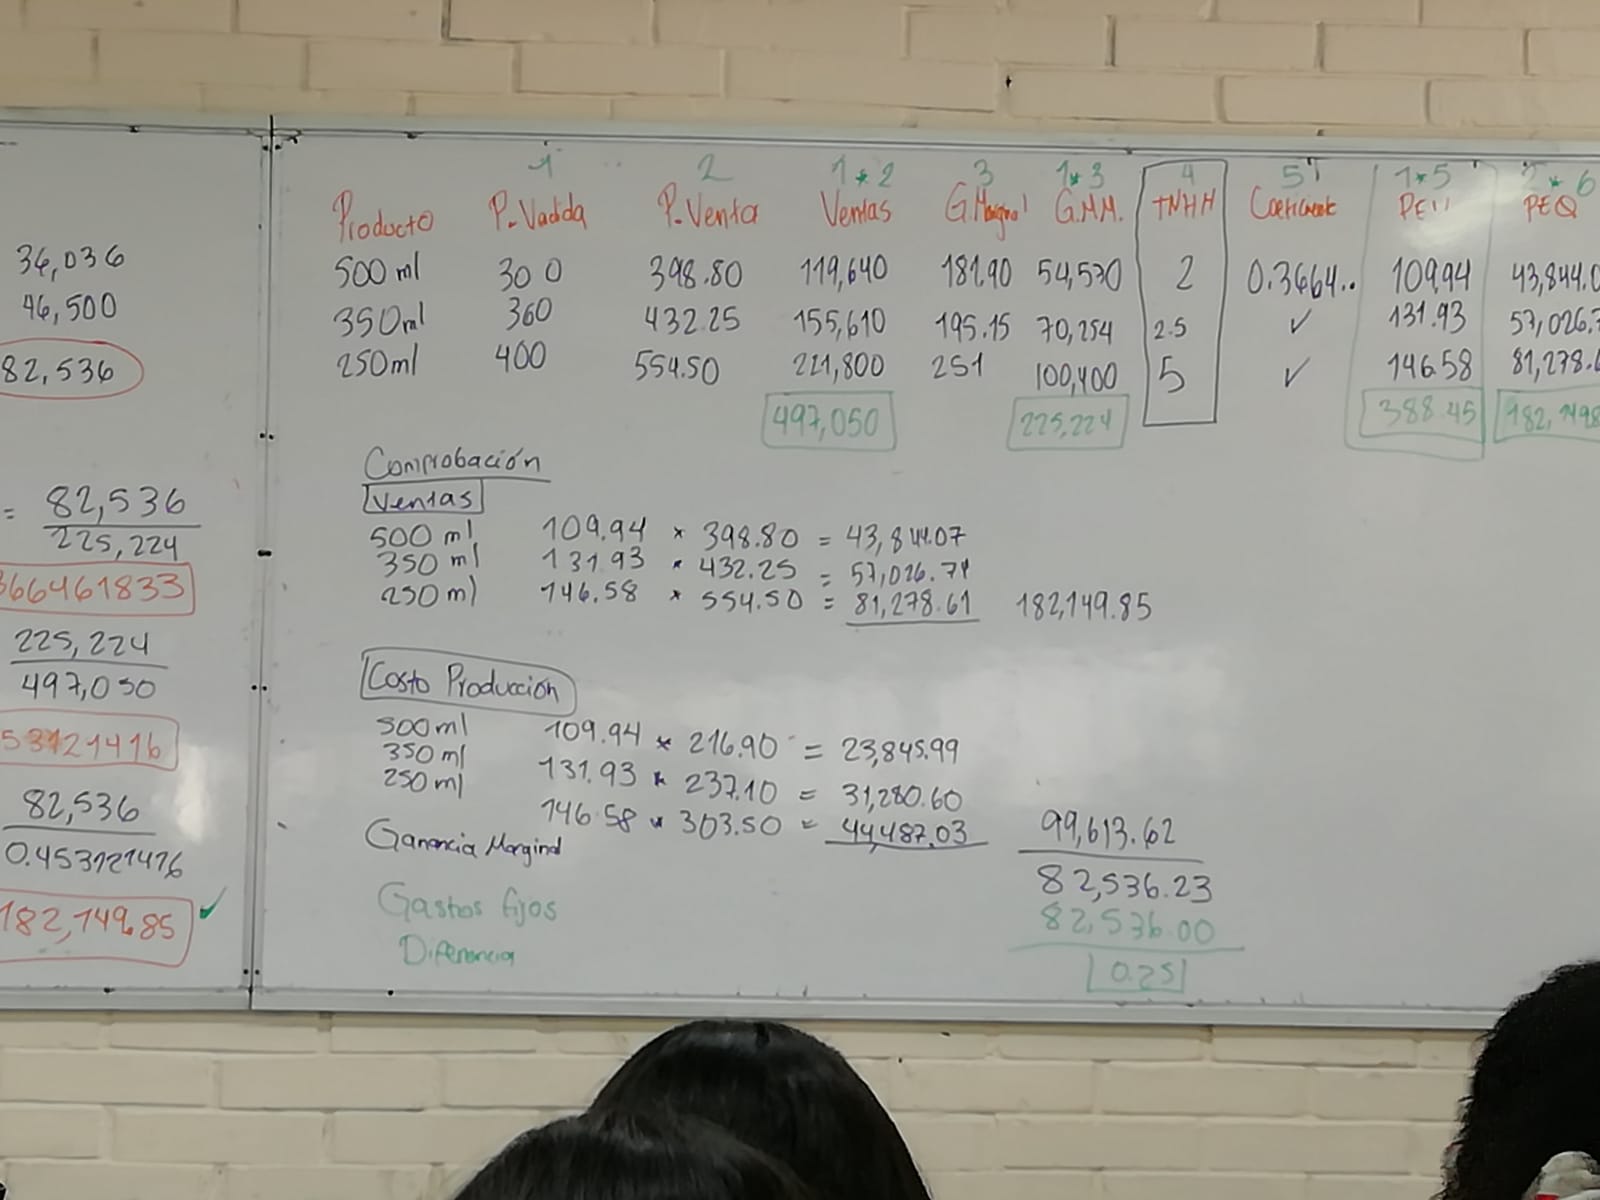 36,036
46,500
82,536
= 82,536
225,224
366461833
225,224
497,050
53121416
82,536
0.453121416
182,149.85 ✓
1 2 1*2 3 1*3 4 5 1*5 2*6
Producto P.Vendida P.Venta Ventas G.Marginal G.M.M. TNHH Coeficiente PEU PEQ
500 ml 300 398.80 119,640 181.90 54,570 2 0.3664.. 109.94 43,844.0
350ml 360 432.25 155,610 195.15 70,254 2.5 ✓ 131.93 57,026.7
250ml 400 554.50 221,800 251 100,400 5 ✓ 146.58 81,278.6
497,050 225,224 388.45 182,149.8
Comprobación
Ventas
500 ml 109.94 * 398.80 = 43,844.07
350 ml 131.93 * 432.25 = 57,026.74
250 ml 146.58 * 554.50 = 81,278.61 182,149.85
Costo Producción
500ml 109.94 * 216.90 = 23,845.99
350 ml 131.93 * 237.10 = 31,280.60
250 ml 146.58 * 303.50 = 44,487.03 99,613.62
Ganancia Marginal 82,536.23
Gastos fijos 82,536.00
Diferencia 0.25